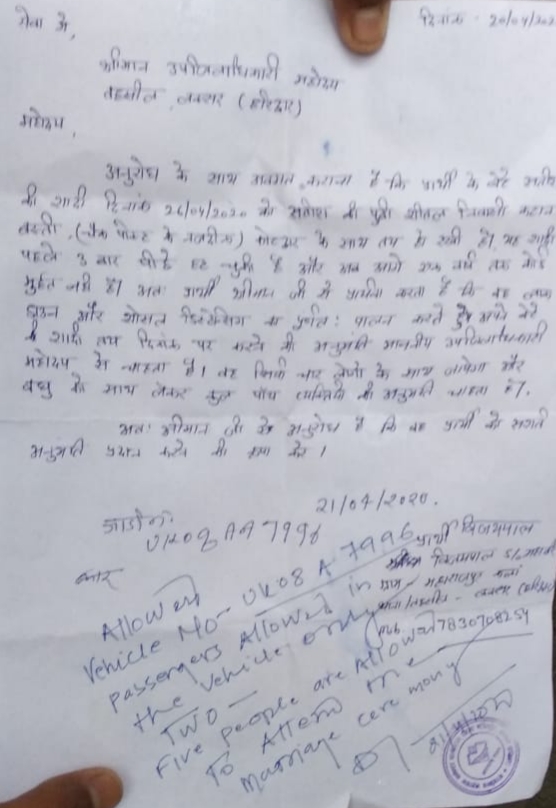 सेवा में,
दिनांक - 20/04/202
श्रीमान उपजिलाधिकारी महोदय
तहसील, लक्सर (हरिद्वार)
महोदय,
अनुरोध के साथ अवगत कराना है कि प्रार्थी के बेटे
की शादी दिनांक 26/04/2020 को सतीश की पुत्री शीतल निवासी
बस्ती, (चैक पोस्ट के नजदीक) कोटद्वार के साथ तय हो रखी है। यह शादी
पहले 3 बार पीछे हट चुकी है और अब आगे एक वर्ष तक कोई
मुहूर्त नहीं है। अतः प्रार्थी श्रीमान जी से प्रार्थना करता है कि वह लाक
डाउन और सोशल का पूर्णतः पालन करते हुए अपने बेटे
की शादी तय दिनांक पर करने की अनुमति माननीय उपजिलाधिकारी
महोदय से चाहता है। वह सिर्फ चार लोगों के साथ जायेगा और
वधु के साथ लेकर कुल पाँच व्यक्तियों की अनुमति चाहता है।
अतः श्रीमान जी से अनुरोध है कि वह प्रार्थी को
अनुमति प्रदान करने की कृपा करें।
21/04/2020.
गाडी नं.
UK08 AA 7996
कार
प्रार्थी विजयपाल
विजयपाल S/
ग्राम - महाराजपुर
थाना/तहसील - लक्सर
7830708259
Allowed
Vehicle No- UK08 A 7996
Passengers Allowed in
the vehicle only
TWO -
Five people are Allowed
To Attend the
Marriage ceremony